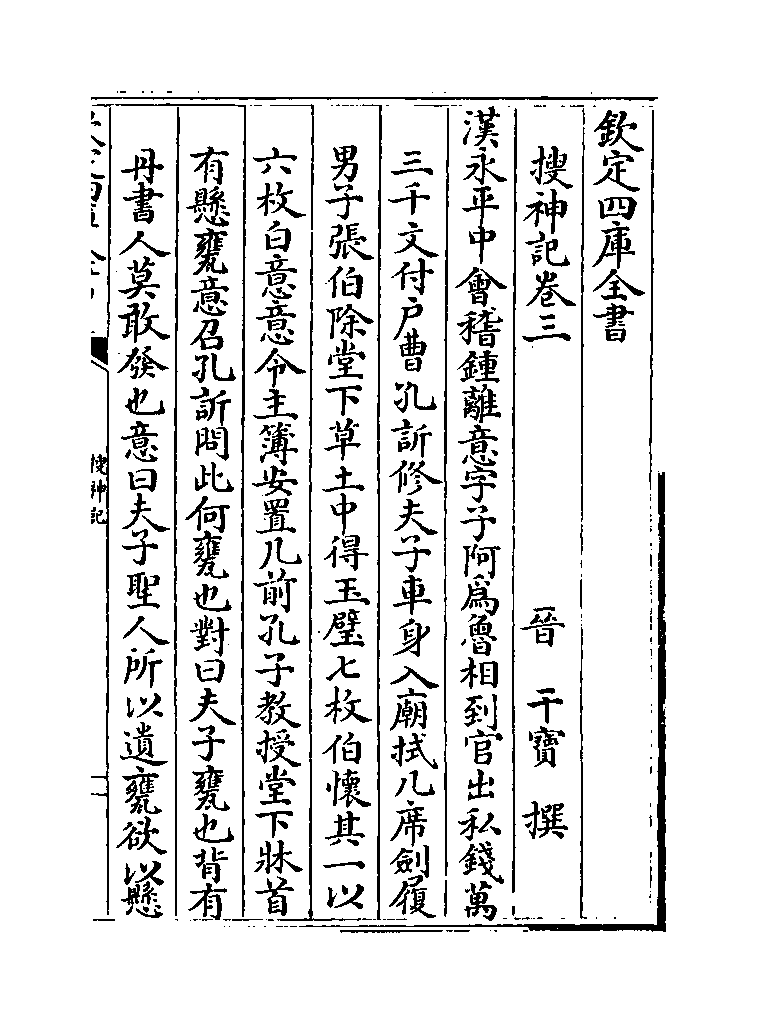 欽定四庫全書
搜神記卷三
晉 干寳 撰
漢永平中會稽鍾離意字子阿爲魯相到官出私錢萬
三千文付户曹孔訢修夫子車身入廟拭几席劍履
男子張伯除堂下草土中得玉璧七枚伯懷其一以
六枚白意意令主簿安置几前孔子教授堂下牀首
有懸甕意召孔訢問此何甕也對曰夫子甕也背有
丹書人莫敢發也意曰夫子聖人所以遺甕欲以懸
搜神記